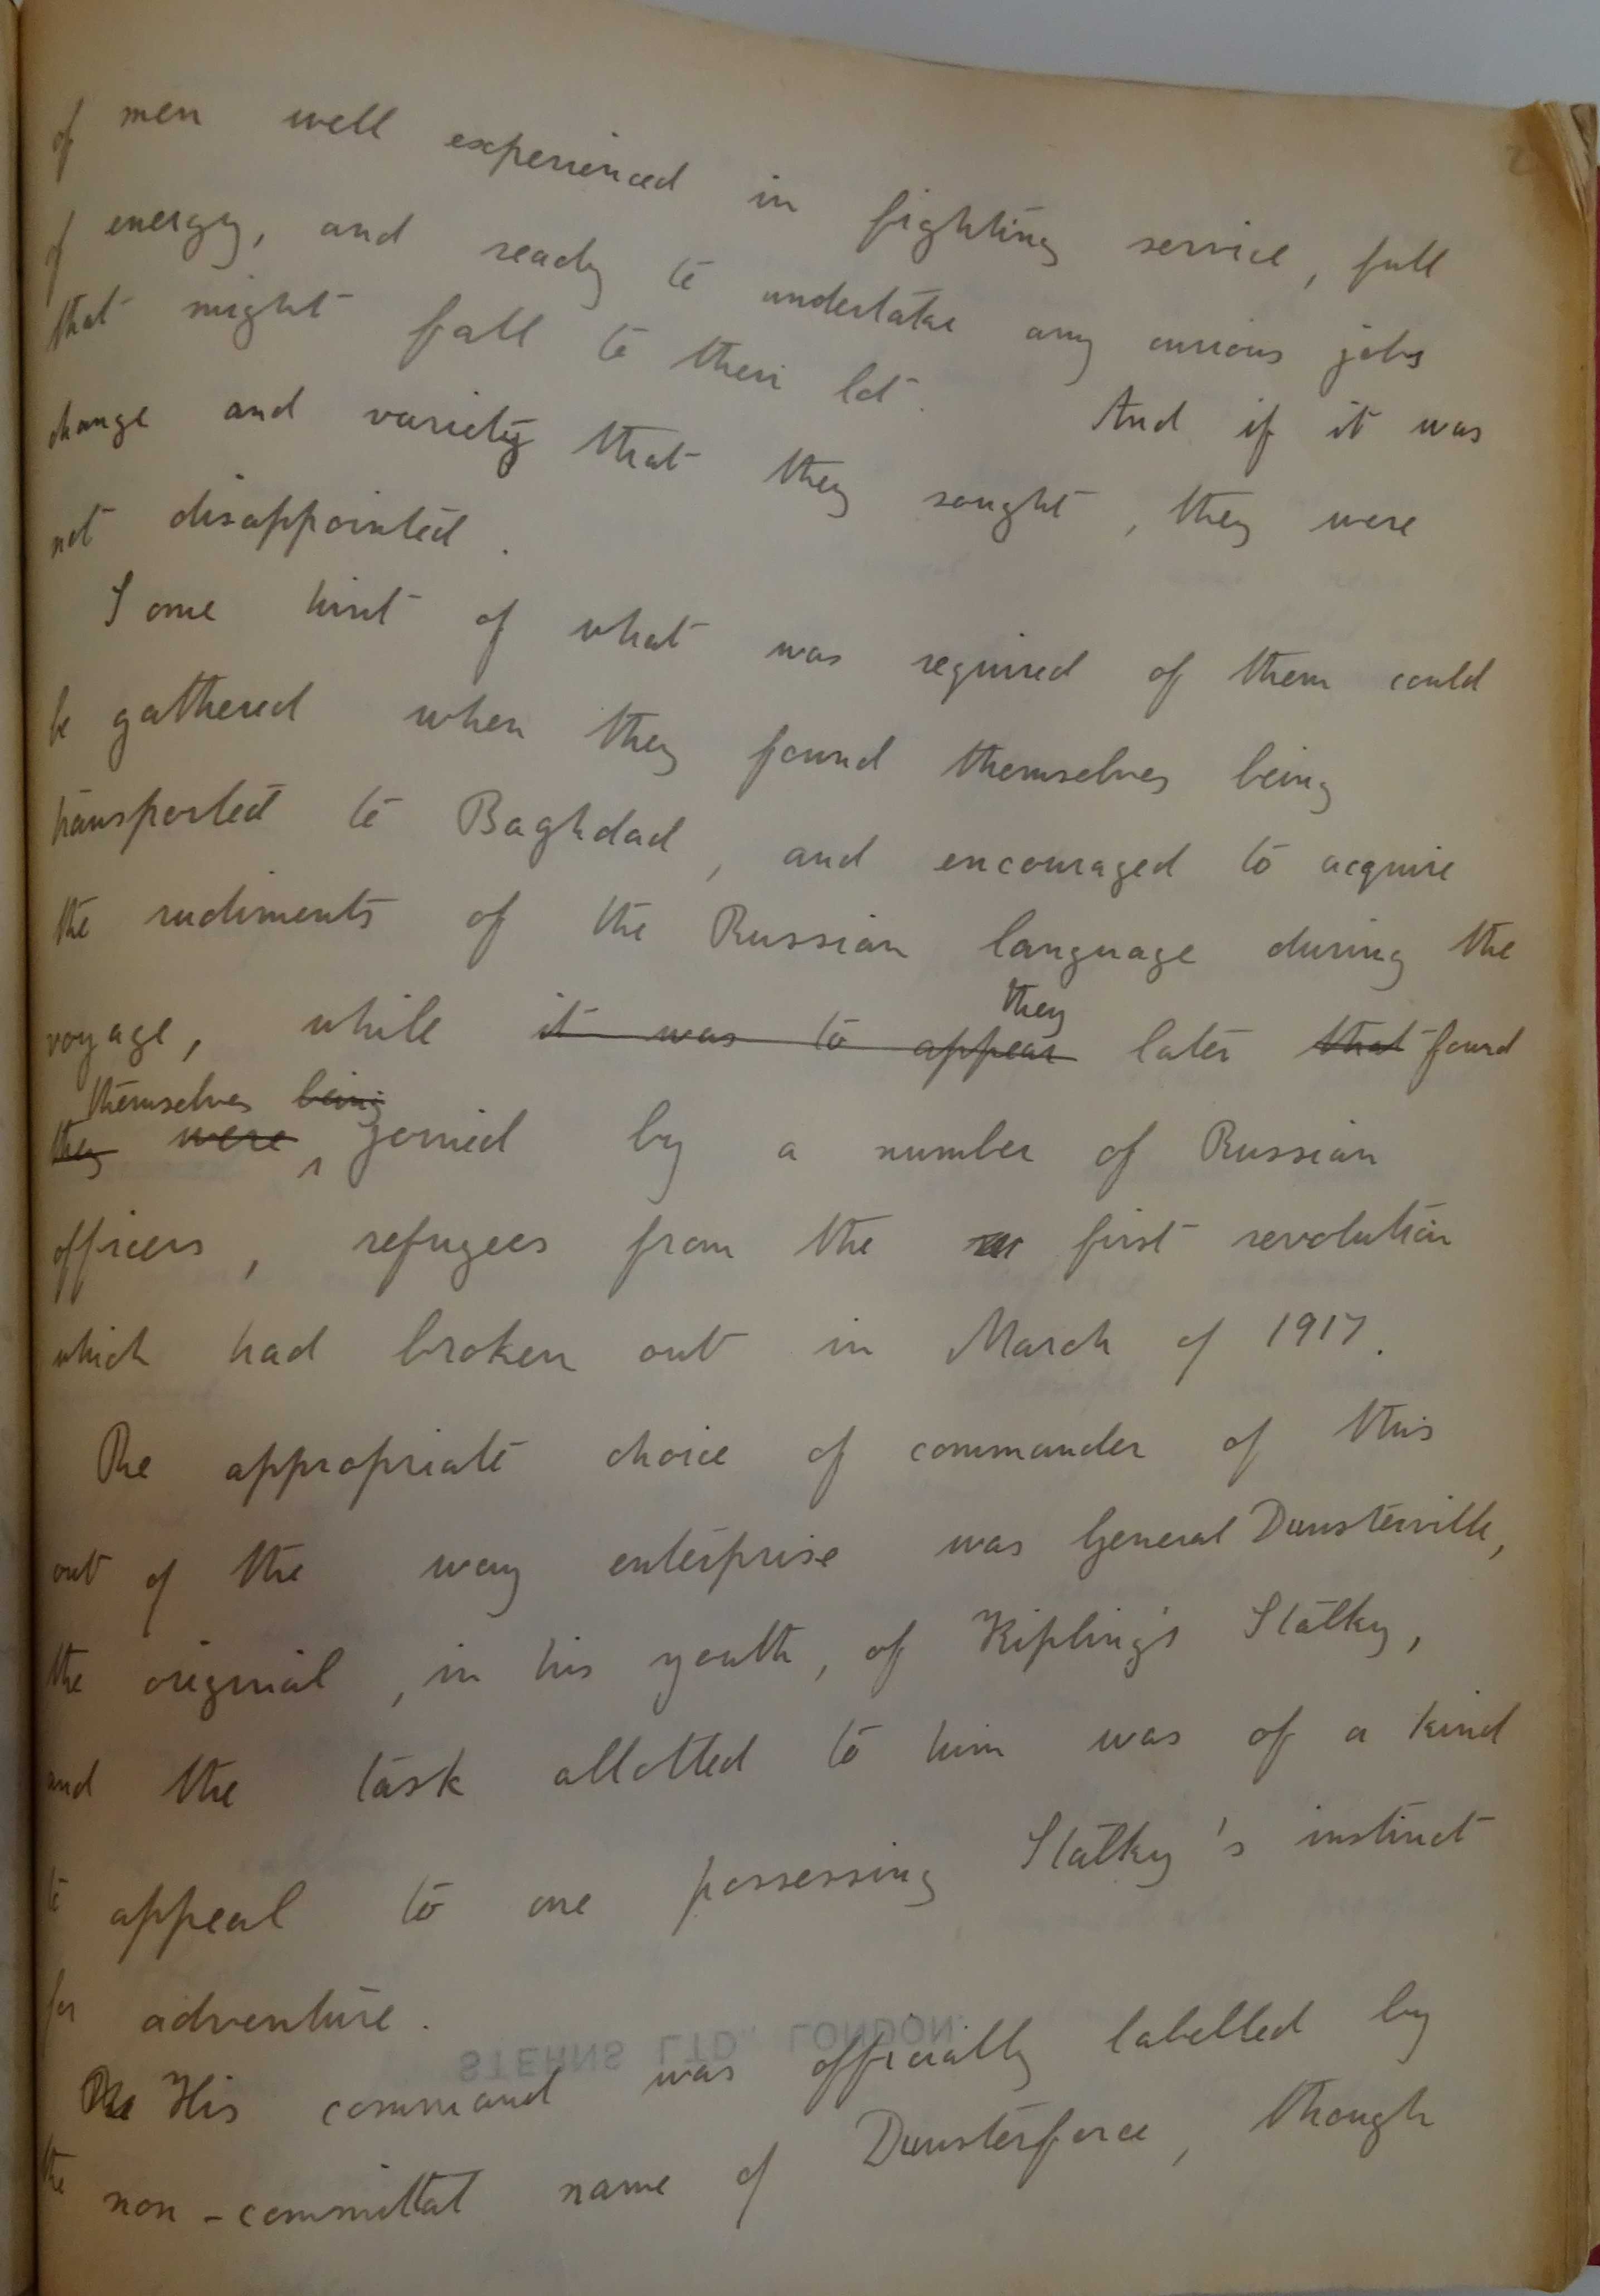 2
of men well experienced in fighting service, full
of energy, and ready to undertake any curious jobs
that might fall to their lot. And if it was
change and variety that they sought, they were
not disappointed.
Some hint of what was required of them could
be gathered when they found themselves being
transported to Baghdad, and encouraged to acquire
the rudiments of the Russian language during the
they
voyage, while it was to appear later that found
themselves being
they were ^ joined by a number of Russian
officers, refugees from the first revolution
which had broken out in March of 1917.
The appropriate choice of commander of this
out of the way enterprise was General Dunsterville,
the original, in his youth, of Kipling's Stalky,
and the task allotted to him was of a kind
to appeal to one possessing Stalky's instinct
for adventure.
STERNS LTD. LONDON.
The His command was officially labelled by
the non-committal name of Dunsterforce, though